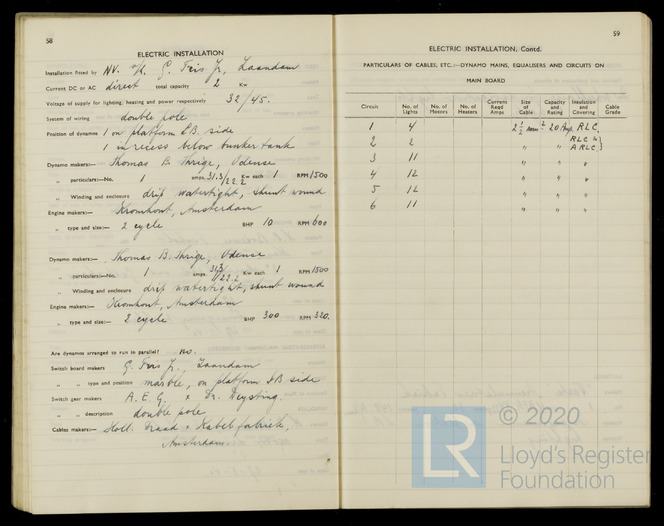 58
ELECTRIC INSTALLATION
Installation fitted by NV. v/h. G. Fris Jr., Zaandam
Current DC or AC direct total capacity 2 Kw
Voltage of supply for lighting, heating and power respectively 32/45.
System of wiring double pole
Position of dynamos 1 on platform SB. side
1 in recess below bunker tank
Dynamo makers:— Thomas B. Thrige, Odense
„ particulars:—No. 1 amps 31.3/22.2 Kw each 1 RPM 1500
„ Winding and enclosure drip watertight, shunt wound
Engine makers:— Kromhout, Amsterdam
„ type and size:— 2 cycle BHP 10 RPM 600
Dynamo makers:— Thomas B. Thrige, Odense
„ particulars:—No. 1 amps 31.3/22.2 Kw each 1 RPM 1500
„ Winding and enclosure drip watertight, shunt wound
Engine makers:— Kromhout, Amsterdam
„ type and size:— 2 cycle BHP 300 RPM 320.
Are dynamos arranged to run in parallel? no.
Switch board makers G. Fris Jr., Zaandam
„ „ type and position marble, on platform SB side
Switch gear makers A.E.G. & Dr.
„ „ description double pole
Cables makers:— Holl. Draad & Kabelfabriek,
Amsterdam.
59
ELECTRIC INSTALLATION, Contd.
PARTICULARS OF CABLES, ETC.:—DYNAMO MAINS, EQUALISERS AND CIRCUITS ON
MAIN BOARD
Circuit No. of Lights No. of Motors No. of Heaters Current Reqd Amps Size of Cable Capacity and Rating Insulation and Covering Cable Grade
1 4 2½ mm² 20 Amp. RLC
2 2 „ „ RLC & ARLC }
3 11 „ „ „
4 12 „ „ „
5 12 „ „ „
6 11 „ „ „
LR © 2020
Lloyd's Register
Foundation